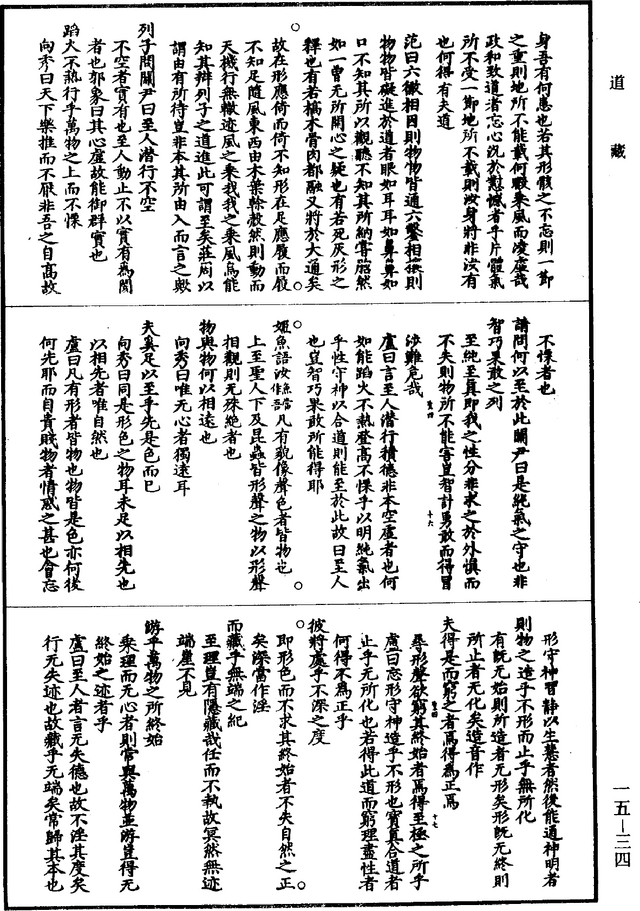 道藏
身吾有何患也若其形骸之不忘則一節
之重則地所不能載何暇乘風而凌虛哉
政和致道者忘心況於懟憾者乎片體氣
所不受一節地所不載則汝身將非汝有
也何得有夫道
范曰六徹相因則物物皆通六鑿相攘則
物物皆礙進於道者眼如耳耳如鼻鼻如
口不知其所以觀聽不知其所納嘗㗳然
如一曾无所間心之疑也有若死灰形之
釋也有若槁木骨肉都融又將於大通矣
故在形應倚而倚不知形在足應履而履
不知足隨風東西由木葉幹殼然則動而
天機行無轍迹風之乘我我之乘風烏能
知其辯列子之道進此可謂至矣莊周以
謂由有所待豈非本其所由入而言之歟
列子問關尹曰至人潛行不空
不空者實有也至人動止不以實有為閡
者也郭象曰其心虛故能御群實也
蹈火不熱行乎萬物之上而不慄
向秀曰天下樂推而不厭非吾之自高故
不慄者也
請問何以至於此關尹曰是純氣之守也非
智巧果敢之列
至純至真即我之性分非求之於外慎而
不失則物所不能害豈智計勇敢而得冒
涉難危哉
盧曰言至人潛行積德非本空虛者也何
如能蹈火不熱登高不慄乎以明純氣出
乎性守神以合道則能至於此故曰至人
也豈智巧果敢所能得耶
姬魚語汝魚當作吾凡有貌像聲色者皆物也
上至聖人下及昆蟲皆形聲之物以形聲
相觀則无殊絕者也
物與物何以相遠也
向秀曰唯无心者獨遠耳
夫奚足以至乎先是色而已
向秀曰同是形色之物耳未足以相先也
以相先者唯自然也
盧曰凡有形者皆物也物皆是色亦何後
何先耶而自貴賤物者情惑之甚也會忘
形守神習靜以生慧者然後能通神明者
則物之造乎不形而止乎無所化
有既无始則所造者无形矣形既无終則
所止者无化矣造音作
夫得是而窮之者焉得為正焉
尋形聲欲窮其終始者焉得至極之所乎
盧曰忘形守神造乎不形也寶真合道者
止乎无所化也若得此道而窮理盡性者
何得不為正乎
彼將處乎不深之度
即形色而不求其終始者不失自然之正
矣深當作淫
而藏乎無端之紀
至理豈有隱藏哉任而不執故冥然無迹
端崖不見
游乎萬物之所終始
乘理而无心者則常與萬物並游豈得无
終始之迹者乎
盧曰至人者言无失德也故不淫其度矣
行无失迹也故藏乎无端矣常歸其本也
一五—三四